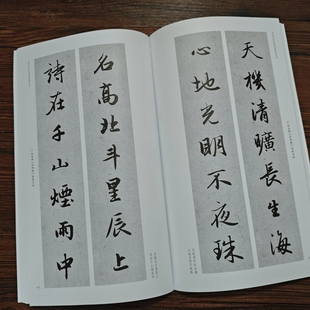 天機清曠長生海
心地光明不夜珠
名高北斗星辰上
詩在千山煙雨中